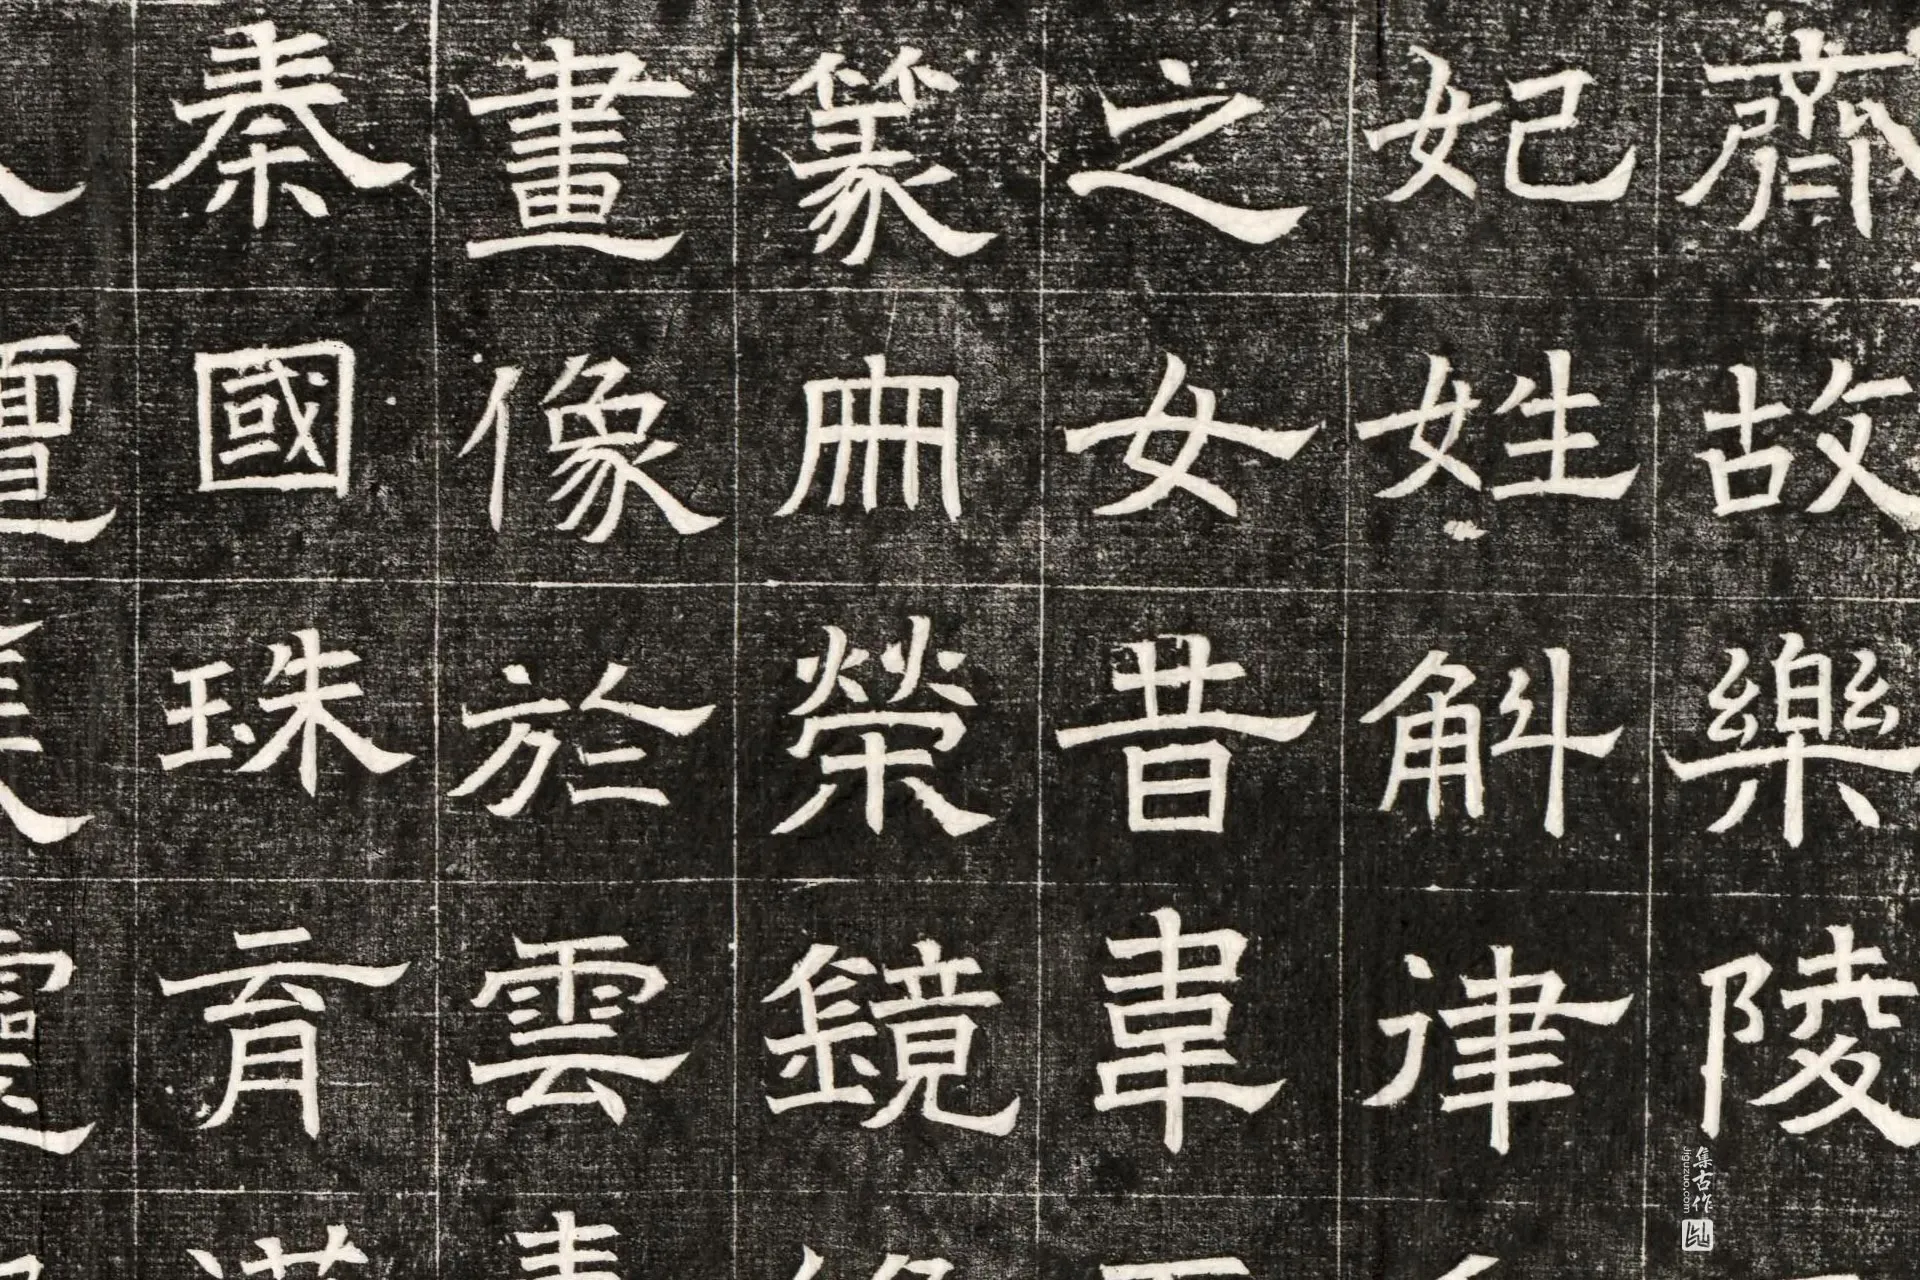 齊故樂陵
妃姓斛律
之女昔韋
篆冊榮鏡
畫像於雲
秦國珠育
集古作
jiguzuo.com